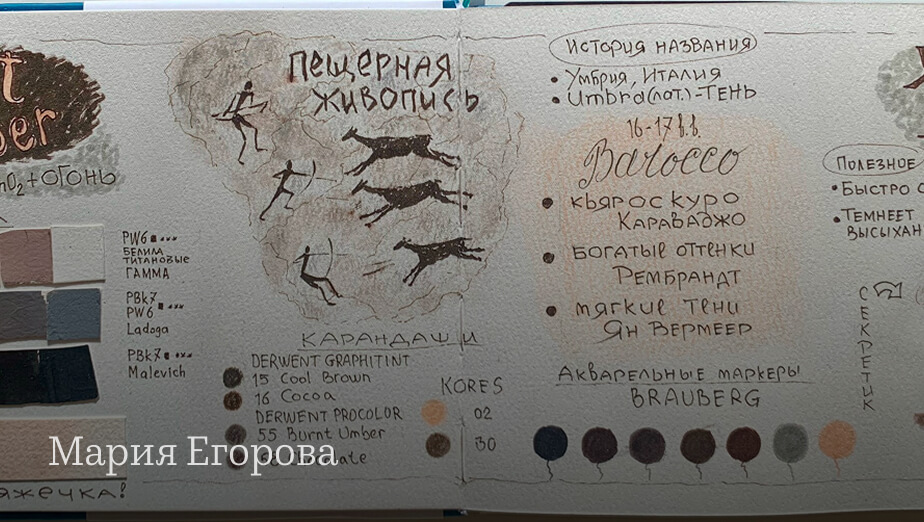 nO₂ + ОГОНЬ
PW6
БЕЛИЛА
ТИТАНОВЫЕ
ГАММА
PBk7
PW6
Ladoga
PBk7
Malevich
Мария Егорова
ПЕЩЕРНАЯ
ЖИВОПИСЬ
КАРАНДАШИ
DERWENT GRAPHITINT
15 Cool Brown
16 Cocoa
DERWENT PROCOLOR
55 Burnt Umber
KORES
02
30
ИСТОРИЯ НАЗВАНИЯ
• УМБРИЯ, ИТАЛИЯ
• Umbra (лат.) - ТЕНЬ
16-17 в.в.
Barocco
• КЬЯРОСКУРО
КАРАВАДЖО
• БОГАТЫЕ ОТТЕНКИ
РЕМБРАНДТ
• МЯГКИЕ ТЕНИ
ЯН ВЕРМЕЕР
АКВАРЕЛЬНЫЕ МАРКЕРЫ
BRAUBERG
ПОЛЕЗНОЕ
• БЫСТРО
• ТЕМНЕЕТ
ВЫСЫХАН
СЕКРЕТИК